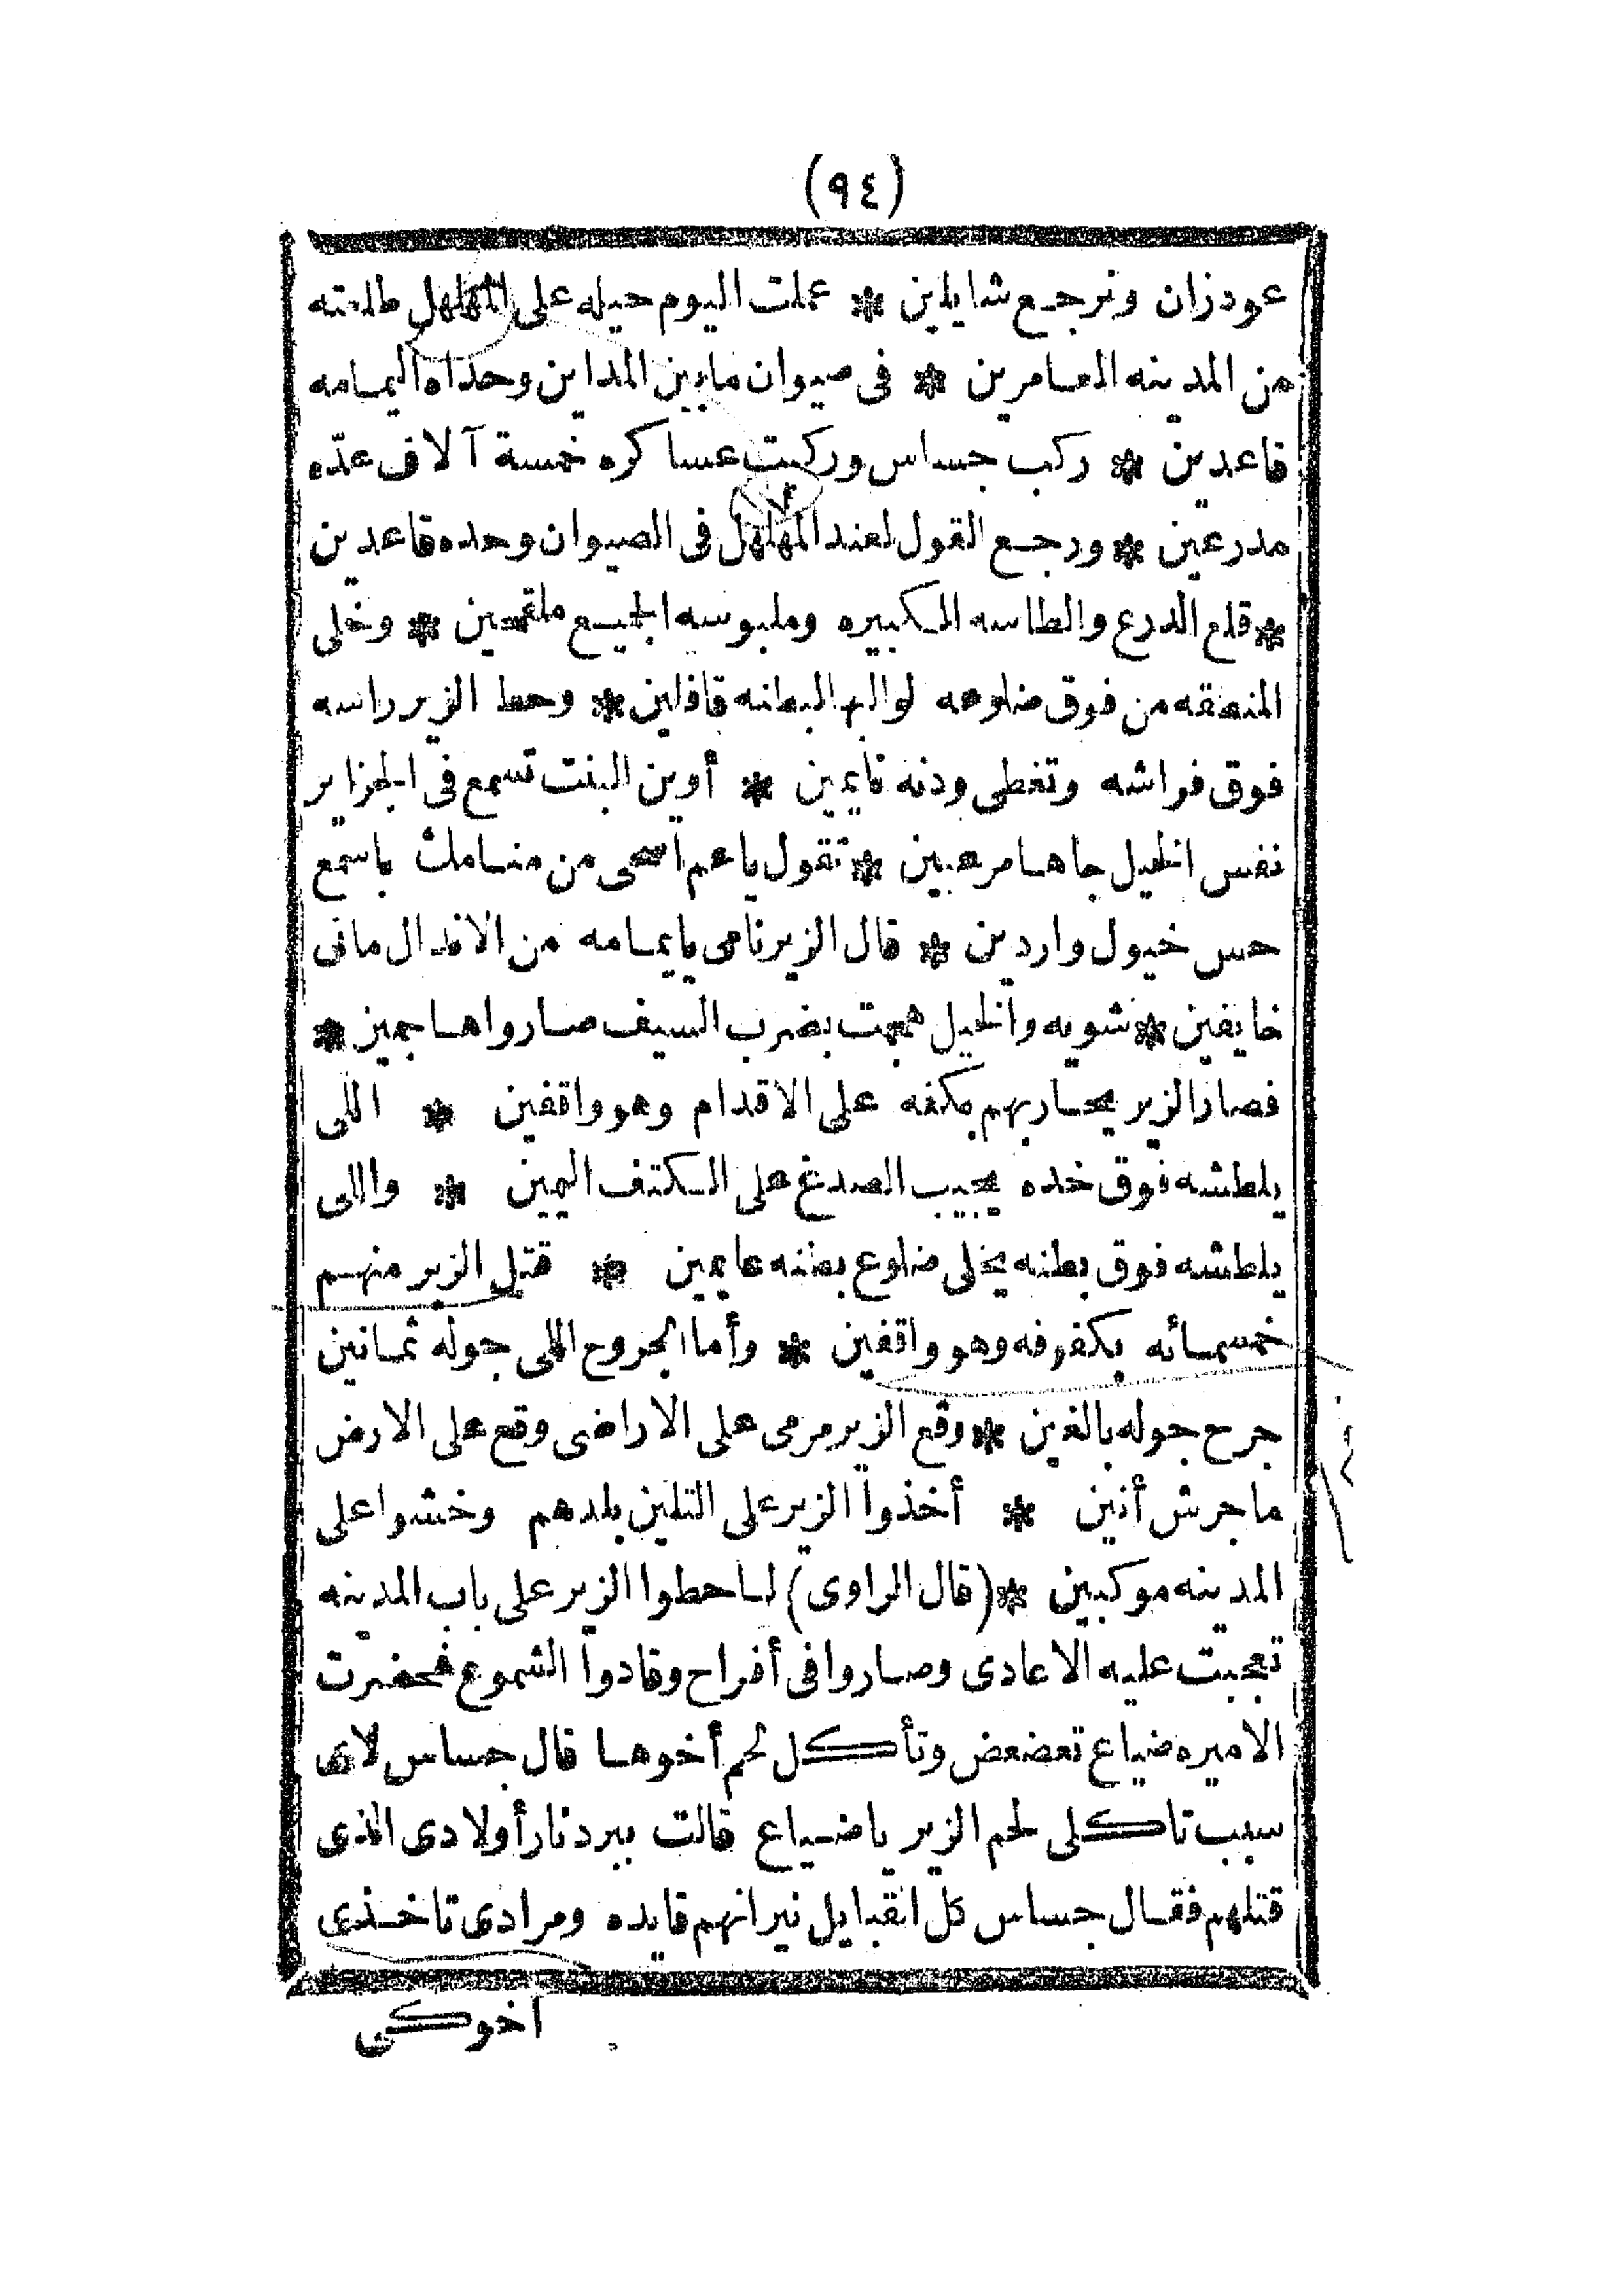 (٩٤)
عود زان ونرجع شايلين * عملت اليوم حيله على المهلهل طلعته
من المدينه العامرين * فى صيوان مابين المداين وحداه اليمامه
قاعدين * ركب جساس وركبت عساكره خمسة آلاف عدّه
مدرعين * ورجع القول لعند المهلهل فى الصيوان وحده قاعدين
* قلع الدرع والطاسه الكبيره وملبوسه الجميع ملقحين * وخلى
المنطقه من فوق ضلوعه لوالبها البطنه قافلين * وحط الزير راسه
فوق فراشه وتغطى ودنه نايمين * أوين البنت تسمع فى الجزاير
نفس الخيل جاها مرعبين * تقول ياعم اصحى من منامك باسمع
حس خيول واردين * قال الزير نامى يايمامه من الاندال مانى
خايفين * شويه والخيل هجمت بضرب السيف صاروا هاجمين *
فصار الزير يحاربهم بكفه على الاقدام وهو واقفين * اللى
يلطشه فوق خده يجيب الصدغ على الكتف اليمين * واللى
يلطشه فوق بطنه يخلى ضلوع بطنه عايمين * قتل الزير منهم
خمسمائه بكفوفه وهو واقفين * وأما الجروح اللى جوله ثمانين
جرح جوله بالغين * وقع الزير مرمى على الاراضى وقع على الارض
ماجرش أنين * أخذوا الزير على التلين بلدهم وخشوا على
المدينه موكبين * (قال الراوى) لما حطوا الزير على باب المدينه
تعجبت عليه الاعادى وصاروا فى أفراح وقادوا الشموع فحضرت
الاميره ضياع تعضعض وتأكل لحم أخوها قال جساس لاى
سبب تاكلى لحم الزير ياضياع قالت يبرد نار أولادى الذى
قتلهم فقال جساس كل القبايل نيرانهم قايده ومرادى تاخذى
اخوكى